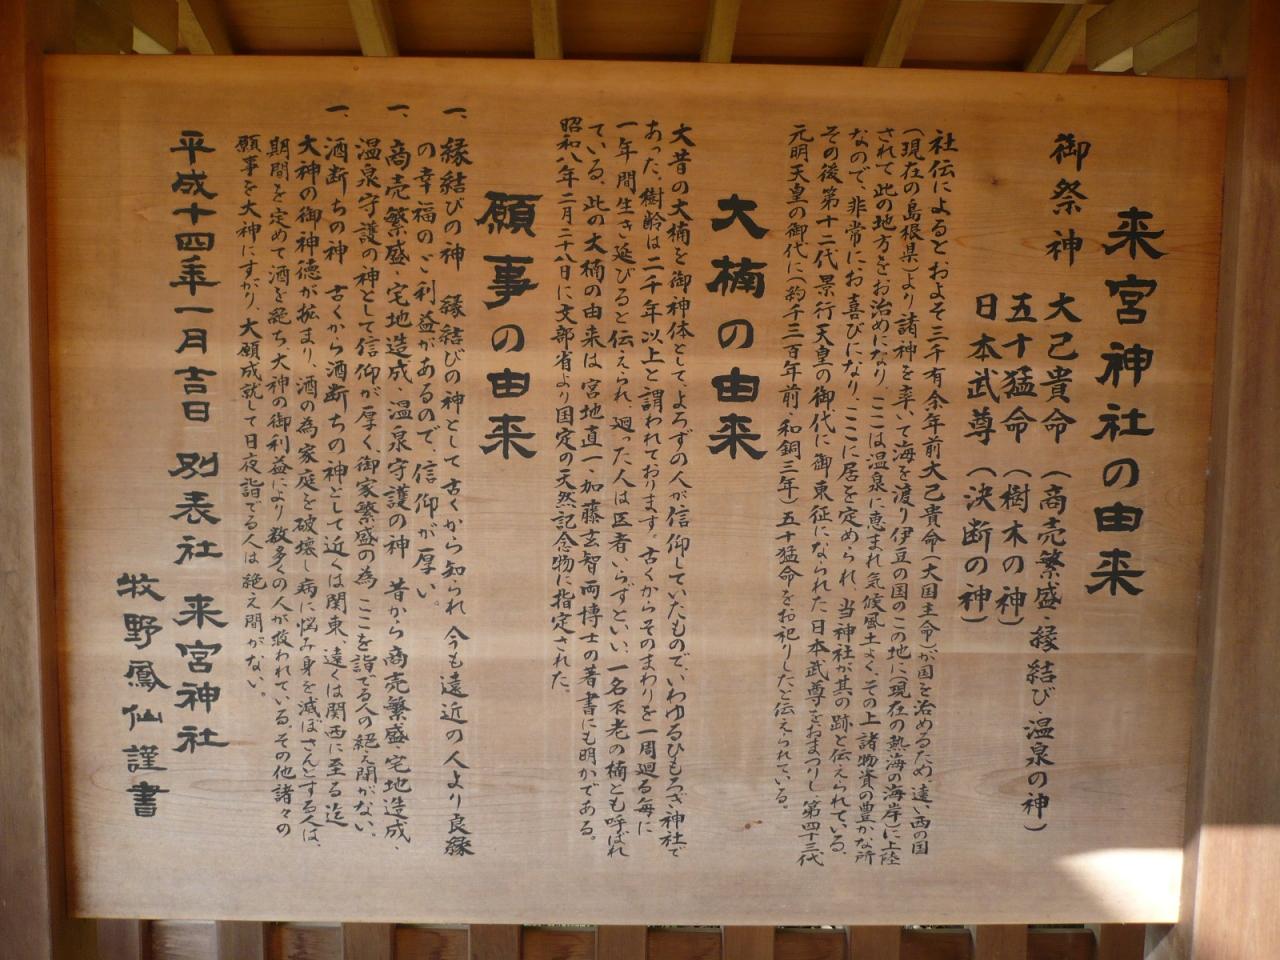 来宮神社の由来
御祭神 大己貴命(商売繁盛・縁結び・温泉の神)
五十猛命(樹木の神)
日本武尊(決断の神)
社伝によるとおよそ三千有余年前大己貴命(大国主命)が国を治めるため、遠い西の国
(現在の島根県)より諸神を率いて海を渡り伊豆の国のこの地に(現在の熱海の海岸)に上陸
されて此の地方をお治めになり、ここは温泉に恵まれ気候風土よく、その上諸物資の豊かな所
なので、非常にお喜びになり、ここに居を定められ、当神社が其の跡と伝えられている。
その後第十二代景行天皇の御代に御東征になられた日本武尊をおまつりし第四十三代
元明天皇の御代に(約千三百年前・和銅三年)五十猛命をお祀りしたと伝えられている。
大楠の由来
大昔の大楠を御神体として、よろずの人が信仰していたもので、いわゆるひもろぎ神社で
あった。樹齢は二千年以上と謂われております。古くからそのまわりを一周廻る毎に
一年間生き延びると伝えられ、廻った人は医者いらずといい、一名不老の楠とも呼ばれ
ている。此の大楠の由来は宮地直一・加藤玄智両博士の著書にも明かである。
昭和八年二月二十八日に文部省より国定の天然記念物に指定された。
願事の由来
一、縁結びの神 縁結びの神として古くから知られ今も遠近の人より良縁
の幸福のご利益があるので、信仰が厚い。
一、商売繁盛・宅地造成・温泉守護の神 昔から商売繁盛・宅地造成・
温泉守護の神として信仰が厚く御家繁盛の為ここを詣でる人の絶え間がない、
一、酒断ちの神 古くから酒断ちの神として近くは関東、遠くは関西に至る迄
大神の御神徳が拡まり、酒の為家庭を破壊し病に悩み身を滅ぼさんとする人は、
期間を定めて酒を絶ち、大神の御利益により数多くの人が救われている。その他諸々の
願事を大神にすがり、大願成就して日夜詣でる人は絶え間がない。
平成十四年一月吉日 別表社 来宮神社
牧野鳳仙謹書